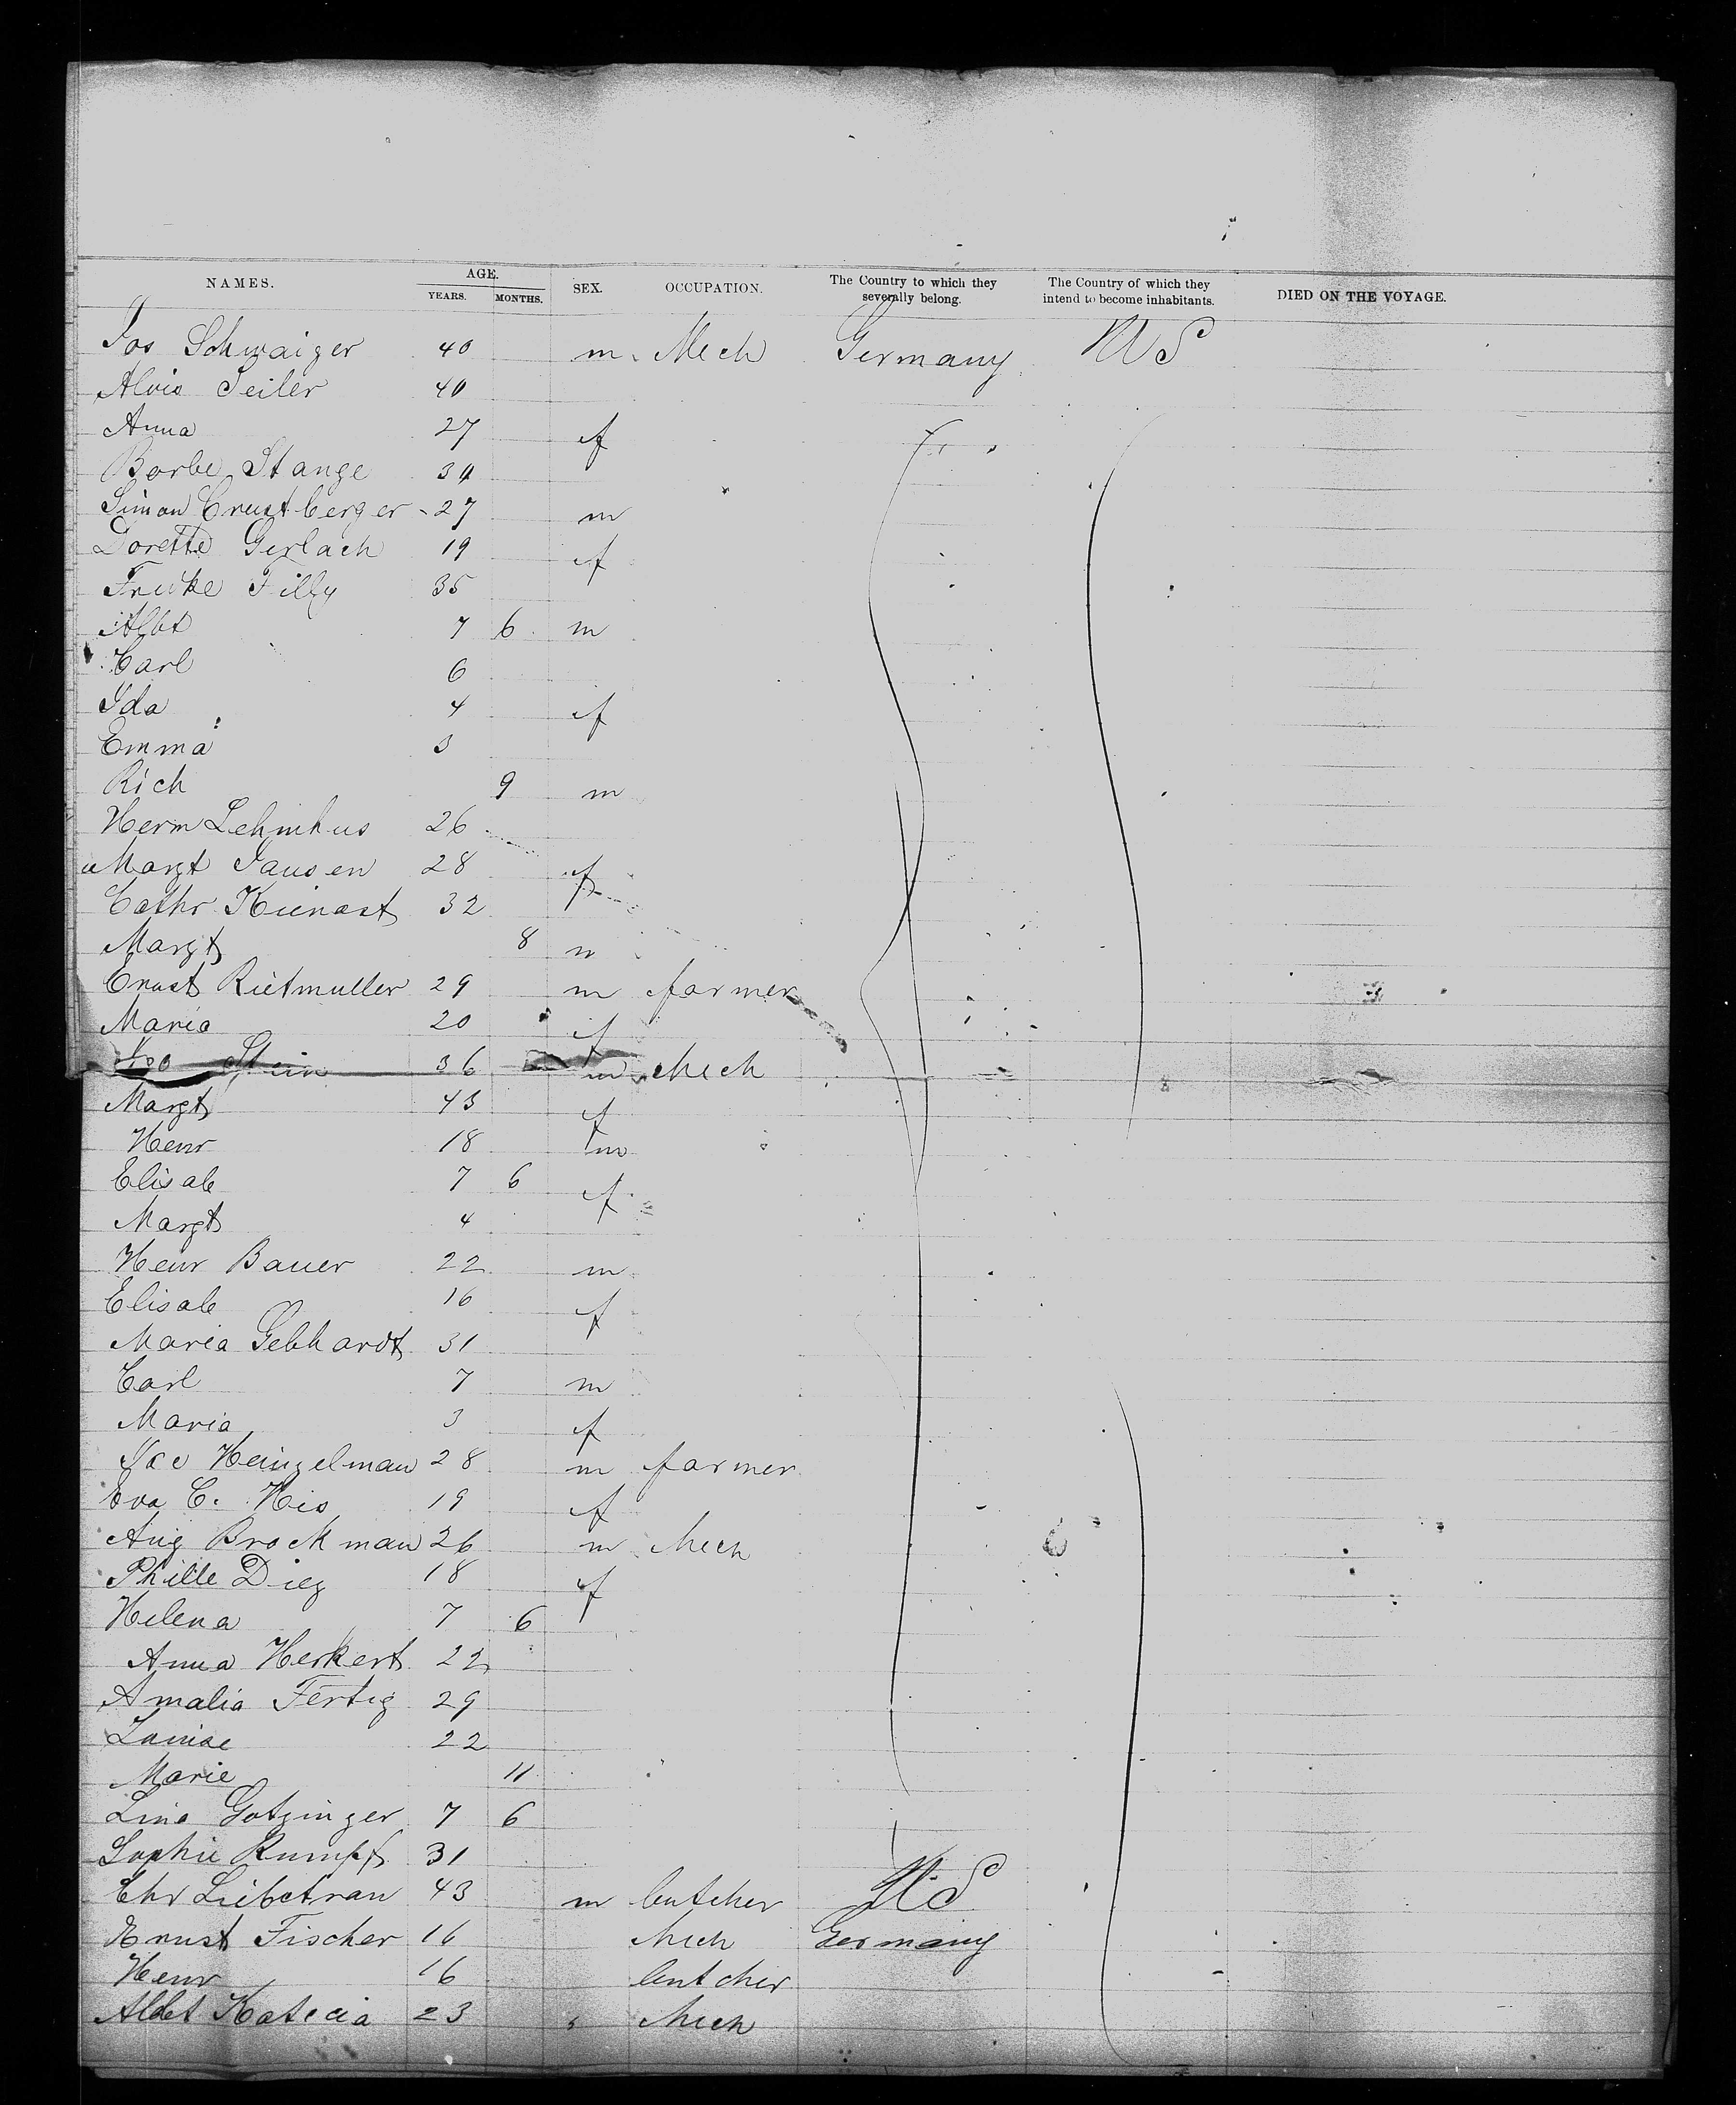 NAMES. AGE. YEARS. MONTHS. SEX. OCCUPATION. The Country to which they severally belong. The Country of which they intend to become inhabitants. DIED ON THE VOYAGE.
Jos Schwaiger 40 m Mech Germany US
Alois Seiler 40
Anna 27 f
Barbe Stange 34
Simon 27 m
Dorette Gerlach 19 f
Filly 35
Albt 7 6 m
Carl 6
Ida 4 f
Emma 3
Rich 9 m
Herm 26
Margt Jansen 28 f
Cathr Kienast 32
Margt 8 m
Ernst Rietmuller 29 m farmer
Maria 20 f
Stein 36 m Mech
Margt 43 f
Henr 18 m
Elisab 7 6 f
Margt 4
Henr Bauer 22 m
Elisab 16 f
Maria Gebhardt 31
Carl 7 m
Maria 3 f
Heinzelman 28 m farmer
Eva C. His 19 f
Aug Brockman 26 m Mech
Diez 18 f
Helena 7 6
Anna Herkert 22
Amalia Fertig 29
Louise 22
Marie 11
Lina Gotzinger 7 6
Sophie Rumpf 31
Chr Liebetran 43 m butcher US
Ernst Fischer 16 Mech Germany
Henr 16 butcher
Albt 23 Mech